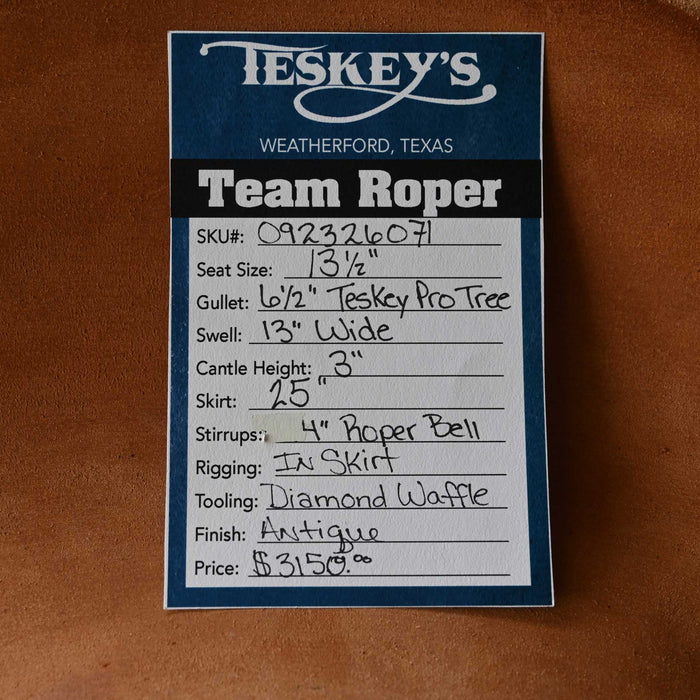 TESKEY'S
WEATHERFORD, TEXAS
Team Roper
SKU#: 092326071
Seat Size: 13½"
Gullet: 6½" Teskey Pro Tree
Swell: 13" Wide
Cantle Height: 3"
Skirt: 25"
Stirrups: 4" Roper Bell
Rigging: In Skirt
Tooling: Diamond Waffle
Finish: Antique
Price: $3150.00